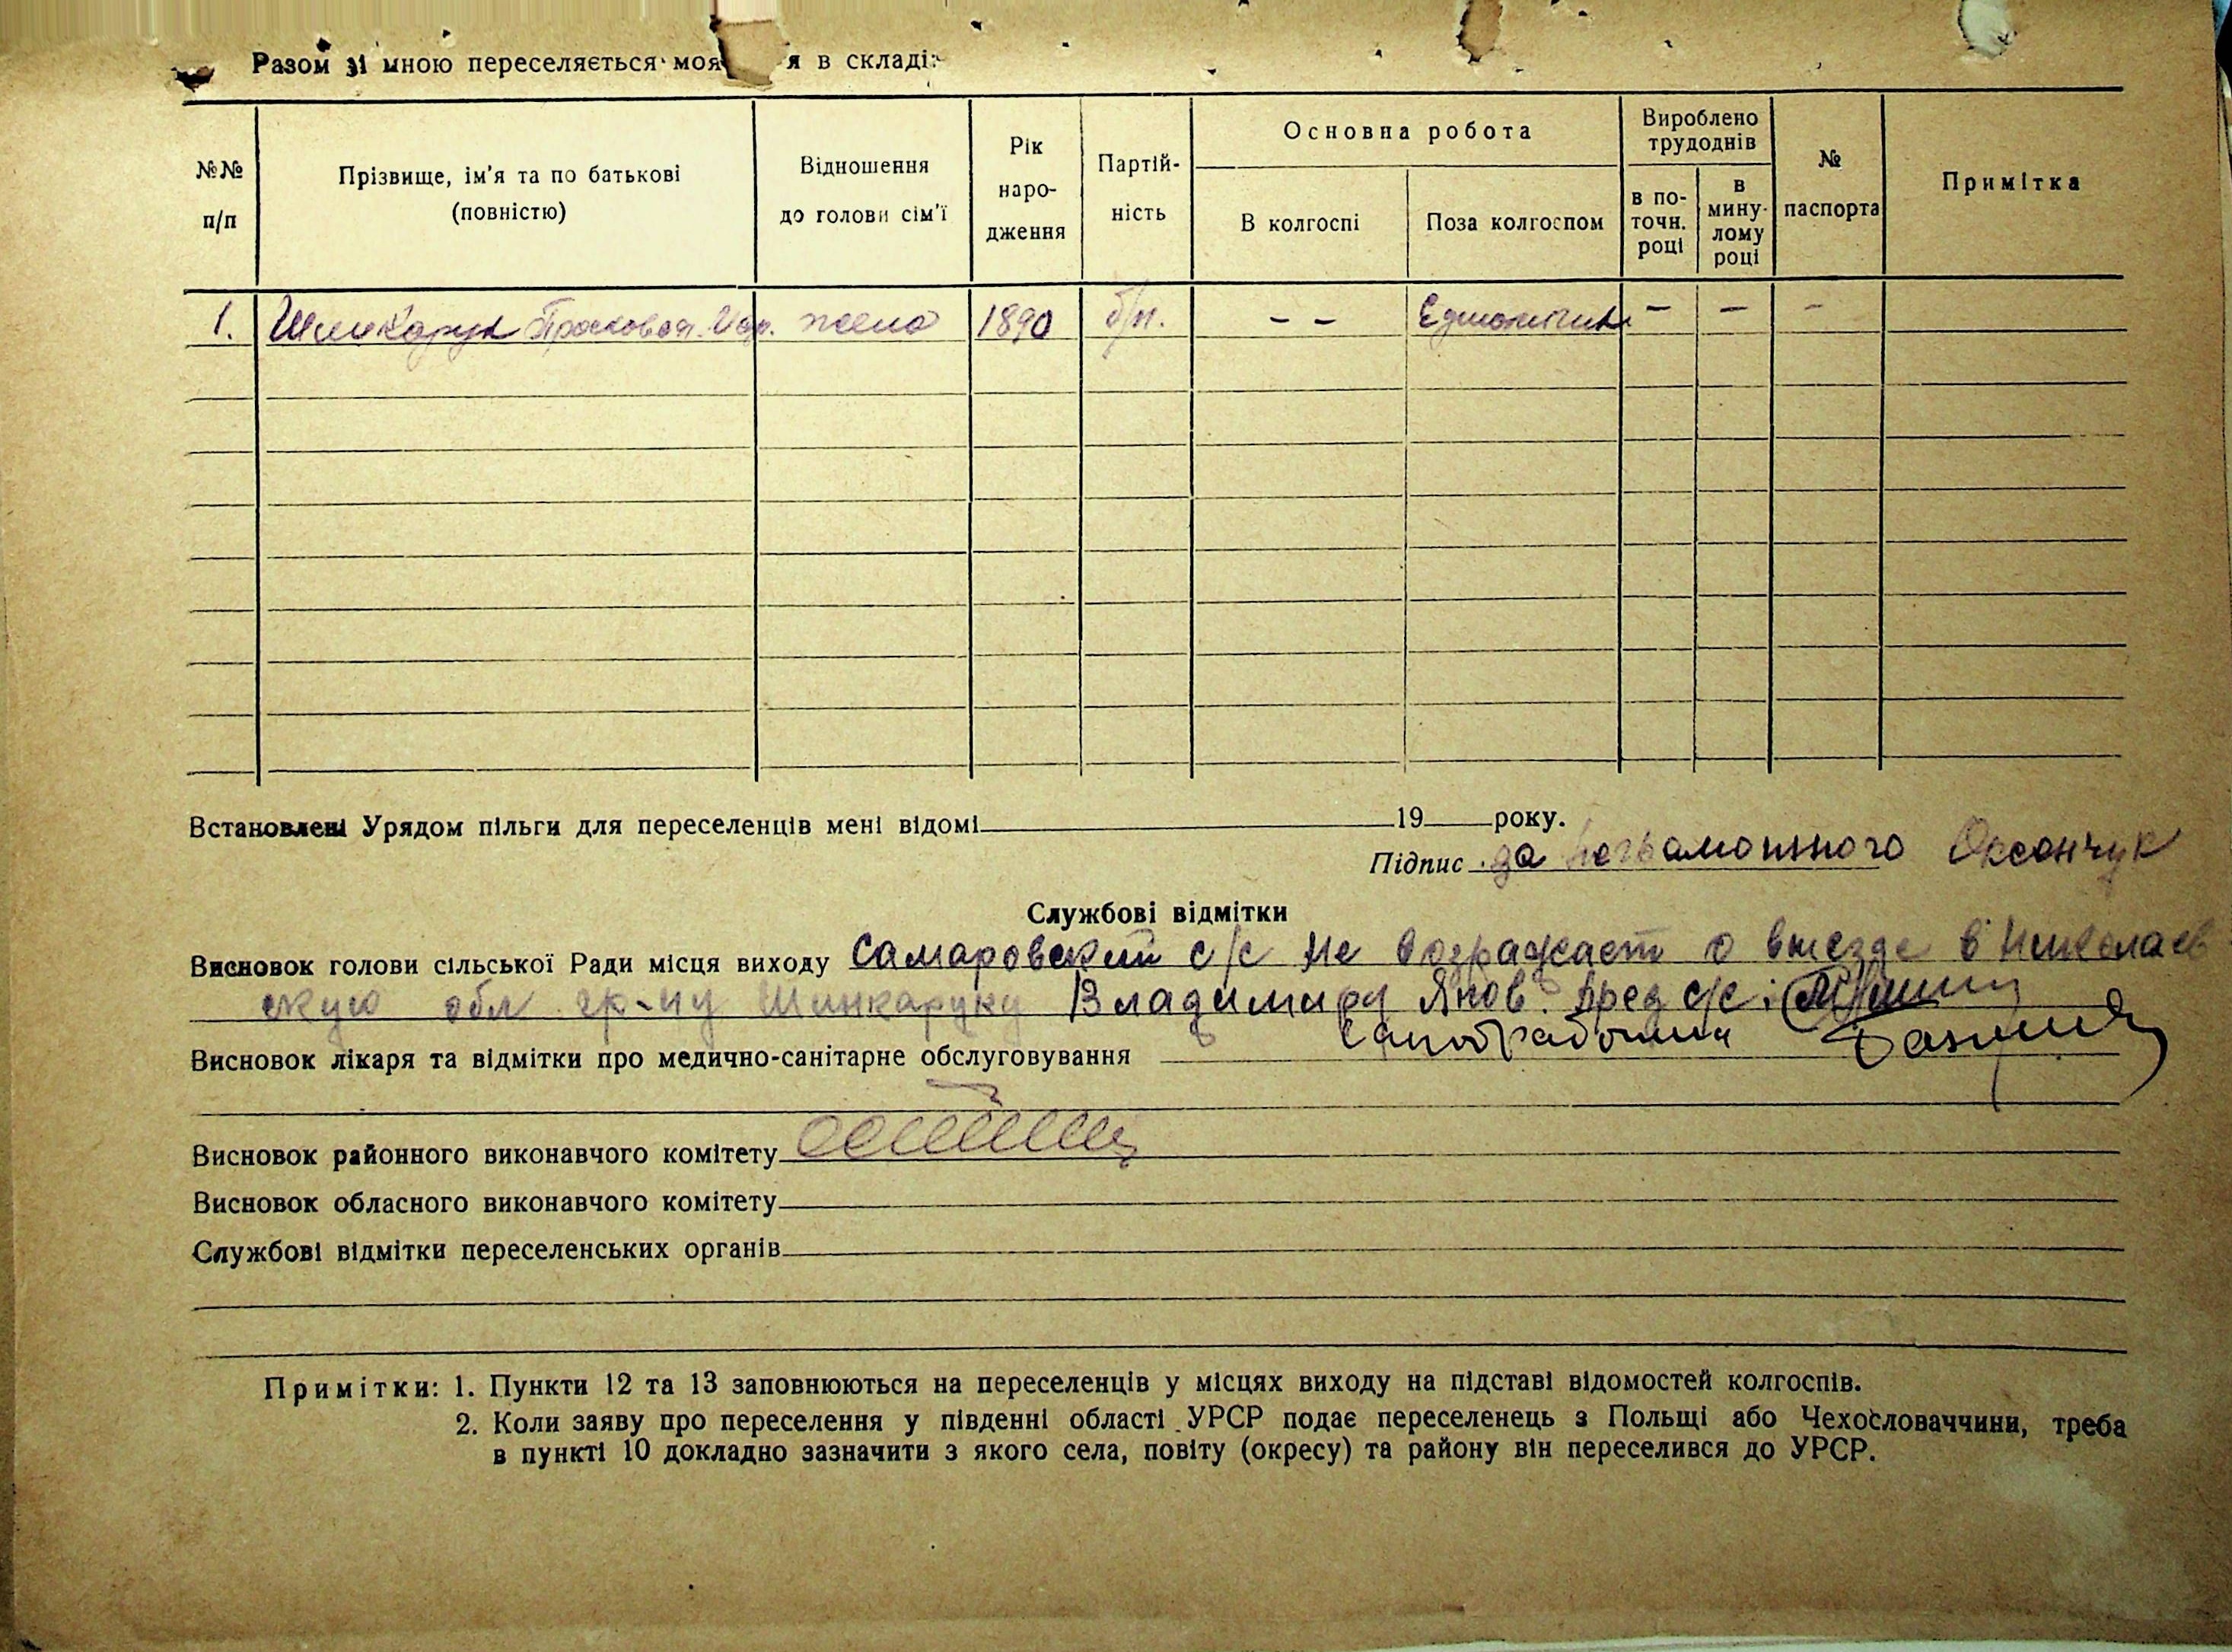 Разом зі мною переселяється моя я в складі:
№№ п/п
Прізвище, ім'я та по батькові (повністю)
Відношення до голови сім'ї
Рік народження
Партій-
ність
Основна робота
В колгоспі
Поза колгоспом
Вироблено
трудоднів
в по-
точн.
році
в
мину-
лому
році
№
паспорта
Примітка
1. Шинкарук Прасковея жена 1890 б/п. - - Единоличник - - -
Встановлені Урядом пільги для переселенців мені відомі 19 року.
Підпис за неграмотного Оксенчук
Службові відмітки
Висновок голови сільської Ради місця виходу Самаровский с/с не возражает о выезде в Николаев
скую обл гр-ну Шинкаруку Владимиру Яков. Пред с/с:
Висновок лікаря та відмітки про медично-санітарне обслуговування
Висновок районного виконавчого комітету
Висновок обласного виконавчого комітету
Службові відмітки переселенських органів
Примітки: 1. Пункти 12 та 13 заповнюються на переселенців у місцях виходу на підставі відомостей колгоспів.
2. Коли заяву про переселення у південні області УРСР подає переселенець з Польщі або Чехословаччини, треба
в пункті 10 докладно зазначити з якого села, повіту (окресу) та району він переселився до УРСР.